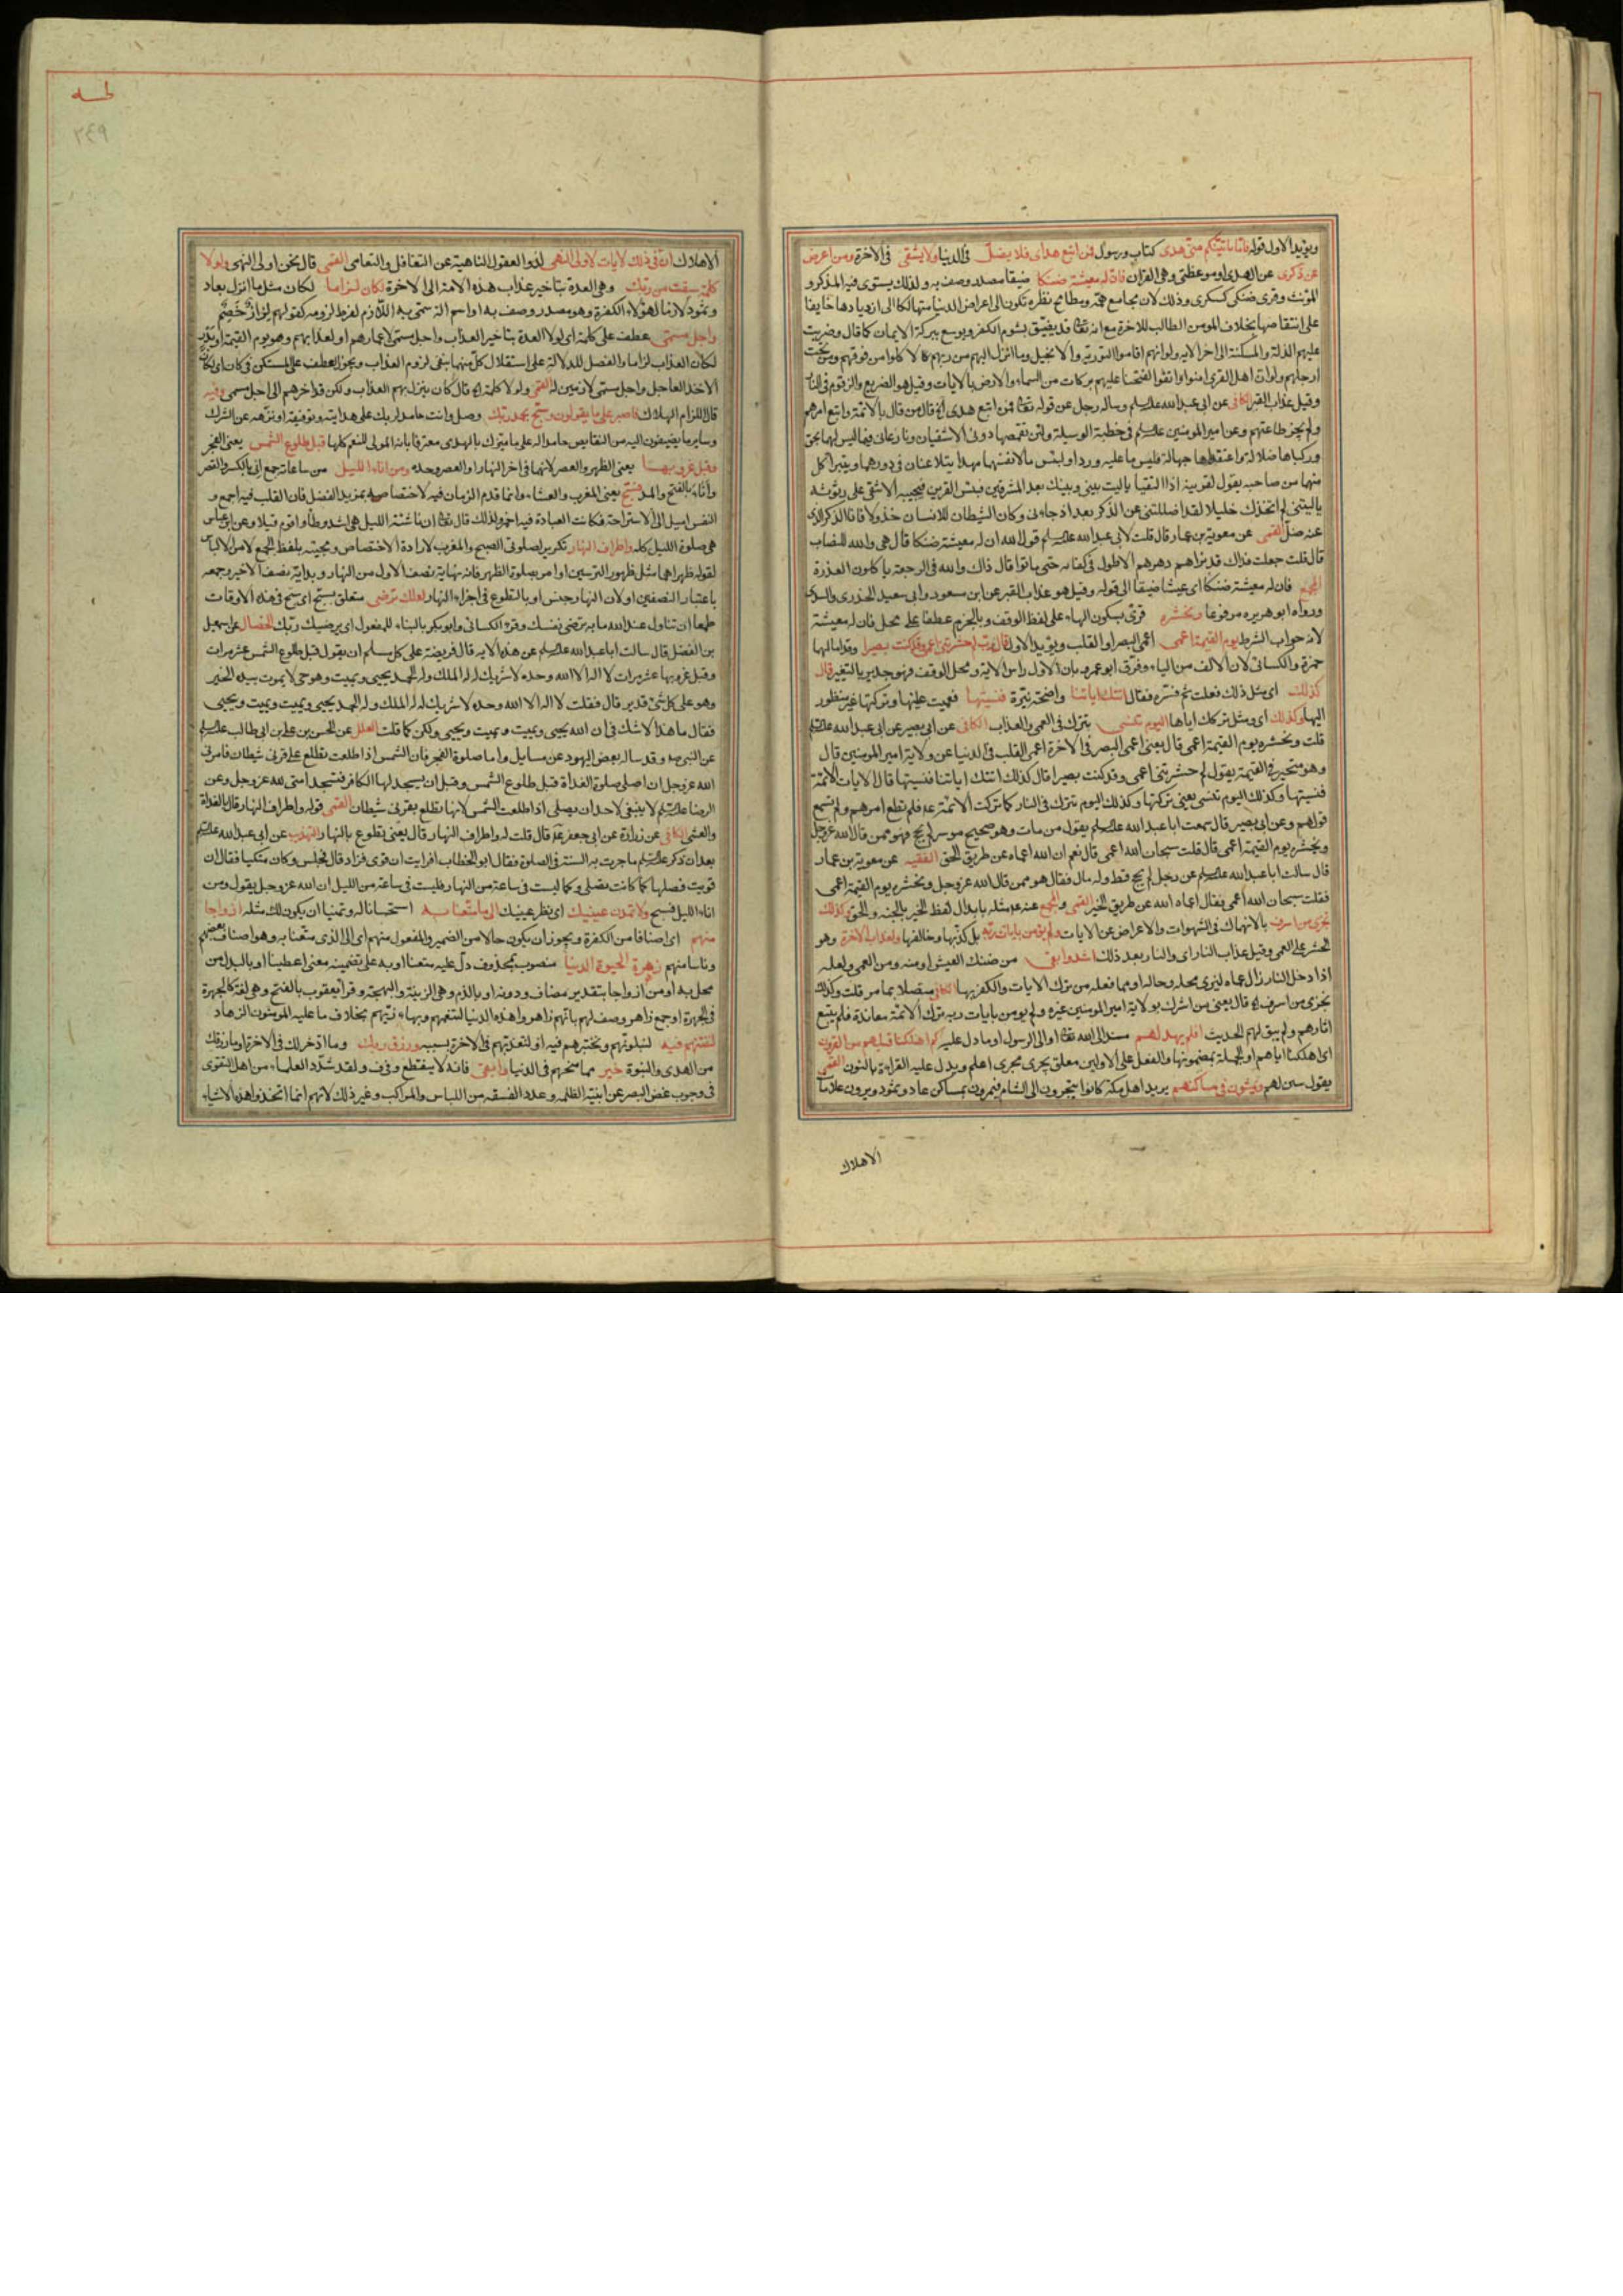 ويؤيد الاول قوله فاما ياتينكم منى هدى كتاب ورسول فمن اتبع هداى فلا يضل فى الدنيا ولا يشقى فى الاخرة ومن اعرض
عن ذكرى عن الهدى او موعظتى وهى القران فان له معيشة ضنكا ضيقا مصدر وصف به ولذلك يستوى فيه المذكر و
المؤنث وقرئ ضنكى كسكرى وذلك لان مجامع همه ومطامح نظره تكون الى اعراض الدنيا متهالكا الى ازديادها خايفا
على انتقاصها بخلاف المومن الطالب للاخرة مع انه تعالى قد يضيق بشوم الكفر ويوسع ببركة الايمان كما قال وضربت
عليهم الذلة والمسكنة الى اخر الايه ولو انهم اقاموا التورية والانجيل وما انزل اليهم من ربهم لاكلوا من فوقهم ومن تحت
ارجلهم ولو ان اهل القرى امنوا واتقوا لفتحنا عليهم بركات من السماء والارض بالايات وقيل هو الضريع والزقوم فى النار
وقيل عذاب القبر الكافى عن ابى عبد الله عليه السلم وساله رجل عن قوله تعالى فمن اتبع هداى اه قال من قال بالائمة واتبع امرهم
ولم يجز طاعتهم وعن امير المومنين عليه السلم فى خطبة الوسيلة ولئن تقمصها دونى الاشقيان ونازعانى فيما ليس لهما بحق
وركباها ضلالة واعتقداها جهالة فلبئس ما عليه وردا ولبئس ما لانفسهما مهدا يتلاعنان فى دورهما ويتبرا كل
منهما من صاحبه يقول لقرينه اذا التقيا ياليت بينى وبينك بعد المشرقين فبئس القرين فيجيبه الاشقى على رثوثة
ياليتنى لم اتخذك خليلا لقد اضللتنى عن الذكر بعد اذ جاءنى وكان الشيطان للانسان خذولا فانا الذكر الذى
عنه ضل القمى عن معوية بن عمار قال قلت لابى عبد الله عليه السلم قول الله ان له معيشة ضنكا قال هى والله للنصاب
قال قلت جعلت فداك قد نراهم دهرهم الاطول فى كفاية حتى ماتوا قال ذاك والله فى الرجعة ياكلون العذرة
المجمع فان له معيشة ضنكا اى عيشا ضيقا الى قوله وقيل هو عذاب القبر عن ابن مسعود وابى سعيد الخدرى والسدى
ورواه ابو هريره مرفوعا ونحشره قرئ بسكون الهاء على لفظ الوقف وبالجزم عطفا على محل فان له معيشة
لانه جواب الشرط يوم القيمة اعمى اعمى البصر او القلب ويؤيد الاول قال رب لم حشرتنى اعمى وقد كنت بصيرا وقد امالهما
حمزة والكسائى لان الالف من الياء وفرق ابو عمرو بان الاول راس الاية ومحل الوقف فهو جدير بالتغيير قال
كذلك اى مثل ذلك فعلت ثم فسره فقال اتتك اياتنا واضحة نيرة فنسيتها فعميت عنها وتركتها غير منظور
اليها وكذلك اى ومثل تركك اياها اليوم تنسى تترك فى العمى والعذاب الكافى عن ابى بصير عن ابى عبد الله عليه السلم
قلت ونحشره يوم القيمة اعمى قال يعنى اعمى البصر فى الاخرة اعمى القلب فى الدنيا عن ولاية امير المومنين قال
وهو متحير فى القيمة يقول لم حشرتنى اعمى وقد كنت بصيرا قال كذلك اتتك اياتنا فنسيتها قال الايات الائمة
فنسيتها وكذلك اليوم تنسى يعنى تركتها وكذلك اليوم تترك فى النار كما تركت الائمة عم فلم تطع امرهم ولم تسمع
قولهم وعن ابى بصير قال سمعت ابا عبد الله عليه السلم يقول من مات وهو صحيح موسر لم يحج فهو ممن قال الله عز وجل
ونحشره يوم القيمة اعمى قال قلت سبحان الله اعمى قال نعم ان الله اعماه عن طريق الحق الفقيه عن معوية بن عمار
قال سالت ابا عبد الله عليه السلم عن رجل لم يحج قط وله مال فقال هو ممن قال الله عز وجل ونحشره يوم القيمة اعمى
فقلت سبحان الله اعمى فقال اعماه الله عن طريق الخير القمى والمجمع عنه عم مثله بابدال لفظ الخير بالجنه والحق وكذلك
نجزى من اسرف بالانهماك فى الشهوات والاعراض عن الايات ولم يؤمن بايات ربه بل كذبها وخالفها ولعذاب الاخرة وهو
الحشر على العمى وقيل عذاب النار اى والنار بعد ذلك اشد وابقى من ضنك العيش او منه ومن العمى ولعله
اذا دخل النار زال عماه ليرى محله وحاله او مما فعله من ترك الايات والكفر بها الكافى متصلا بما مر قلت وكذلك
نجزى من اسرف اه قال يعنى من اشرك بولاية امير المومنين غيره ولم يومن بايات ربه ترك الائمة معاندة فلم يتبع
اثارهم ولم يتولهم الحديث افلم يهد لهم مسند الى الله تعالى او الى الرسول او ما دل عليه كم اهلكنا قبلهم من القرون
اى اهلاكنا اياهم او الجملة بمضمونها والفعل على الاولين معلق يجرى مجرى اعلم ويدل عليه القراءة بالنون القمى
يقول يبين لهم يمشون فى مساكنهم يريد اهل مكة كانوا يتجرون الى الشام فيمرون بمساكن عاد وثمود ويرون علامات
الاهلاك
طه
٢٤٩
الاهلاك ان فى ذلك لايات لاولى النهى لذوى العقول الناهية عن التغافل والتعامى القمى قال نحن اولى النهى ولولا
كلمة سبقت من ربك وهى العدة بتاخير عذاب هذه الامة الى الاخرة لكان لزاما لكان مثل ما انزل بعاد
وثمود لازما لهؤلاء الكفرة وهو مصدر وصف به او اسم الة سمى به اللازم لفرط لزومه كقولهم لزاز خصم
واجل مسمى عطف على كلمة اى لولا العدة بتاخير العذاب واجل مسمى لاعمارهم او لعذابهم وهو يوم القيمة او بدر
لكان العذاب لزاما والفصل للدلالة على استقلال كل منهما بنفى لزوم العذاب ويجوز العطف على المستكن فى كان اى لكان
الاخذ العاجل واجل مسمى لازمين له القمى ولولا كلمة اه قال كان ينزل بهم العذاب ولكن قد اخرهم الى اجل مسمى وفيه
قال اللزام الهلاك فاصبر على ما يقولون وسبح بحمد ربك وصل وانت حامد لربك على هدايته وتوفيقه او نزهه عن الشرك
وساير ما يضيفون اليه من النقايص حامدا له على ما ميزك بالهدى معترفا بانه المولى للنعم كلها قبل طلوع الشمس يعنى الفجر
وقبل غروبها يعنى الظهر والعصر لانهما فى اخر النهار او العصر وحده ومن اناء الليل من ساعاته جمع انى بالكسر والقصر
واناء بالفتح والمد فسبح يعنى المغرب والعشاء وانما قدم الزمان فيه لاختصاصه بمزيد الفضل فان القلب فيه اجمع و
النفس اميل الى الاستراحة فكانت العبادة فيه احمز ولذلك قال تعالى ان ناشئة الليل هى اشد وطأ واقوم قيلا وعن ابن عباس
هى صلوة الليل كله واطراف النهار تكرير لصلوتى الصبح والمغرب لارادة الاختصاص ومجيئه بلفظ الجمع لامن الالباس
لقوله ظهراهما مثل ظهور الترسين او امر بصلوة الظهر فانه نهاية نصف الاول من النهار وبداية نصف الاخير وجمعه
باعتبار النصفين او لان النهار جنس او بالتطوع فى اجزاء النهار لعلك ترضى متعلق بسبح اى سبح فى هذه الاوقات
طمعا ان تنال عند الله ما به ترضى نفسك وقرء الكسائى وابو بكر بالبناء للمفعول اى يرضيك ربك الخصال عن اسمعيل
بن الفضل قال سالت ابا عبد الله عليه السلم عن هذه الايه قال فريضة على كل مسلم ان يقول قبل طلوع الشمس عشر مرات
وقبل غروبها عشر مرات لا اله الا الله وحده لا شريك له له الملك وله الحمد يحيى ويميت وهو حى لا يموت بيده الخير
وهو على كل شئ قدير قال فقلت لا اله الا الله وحده لا شريك له له الملك وله الحمد يحيى ويميت ويميت ويحيى
فقال ياهذا لا شك فى ان الله يحيى ويميت ويميت ويحيى ولكن كما قلت العلل عن الحسن بن على بن ابى طالب عليه السلم
عن النبى ص وقد ساله بعض اليهود عن مسايل واما صلوة الفجر فان الشمس اذا طلعت تطلع على قرنى شيطان فامرنى
الله عز وجل ان اصلى صلوة الغداة قبل طلوع الشمس وقبل ان يسجد لها الكافر فتسجد امتى لله عز وجل وعن
الرضا عليه السلم لا ينبغى لاحد ان يصلى اذا طلعت الشمس لانها تطلع بقرنى شيطان القمى قوله واطراف النهار قال الغداة
والعشى الكافى عن زرارة عن ابى جعفر عم قال قلت له واطراف النهار قال يعنى تطوع بالنهار التهذيب عن ابى عبد الله عليه السلم
بعد ان ذكر عليه السلم ما جرت به السنة فى الصلوة فقال ابو الخطاب افرايت ان قوى فزاد قال فجلس وكان متكيا فقال ان
قويت فصلها كما كانت تصلى وكما ليست فى ساعة من النهار فليست فى ساعة من الليل ان الله عز وجل يقول ومن
اناء الليل فسبح ولا تمدن عينيك اى نظر عينيك الى ما متعنا به استحسانا له وتمنيا ان يكون لك مثله ازواجا
منهم اى اصنافا من الكفرة ويجوز ان يكون حالا من الضمير والمفعول منهم اى الى الذى متعنا به وهو اصناف بعضهم
وناسا منهم زهرة الحيوة الدنيا منصوب بمحذوف دل عليه متعنا او به على تضمينه معنى اعطينا او بالبدل من
محل به او من ازواجا بتقدير مضاف ودونه او بالذم وهى الزينة والبهجة وقرأ يعقوب بالفتح وهى لغة كالجهرة
فى الجهرة او جمع زاهر وصف لهم بانهم زاهروا هذه الدنيا لتنعمهم وبهاء زيهم بخلاف ما عليه المومنون الزهاد
لنفتنهم فيه لنبلونهم ونختبرهم فيه او لنعذبهم فى الاخرة بسببه ورزق ربك وما ادخر لك فى الاخرة او ما رزقك
من الهدى والنبوة خير مما منحهم فى الدنيا وابقى فانه لا ينقطع وفى ف ولقد شدد العلماء من اهل التقوى
فى وجوب غض البصر عن ابنية الظلمه وعدد الفسقه من اللباس والمراكب وغير ذلك لانهم انما اتخذوا هذه الاشياء